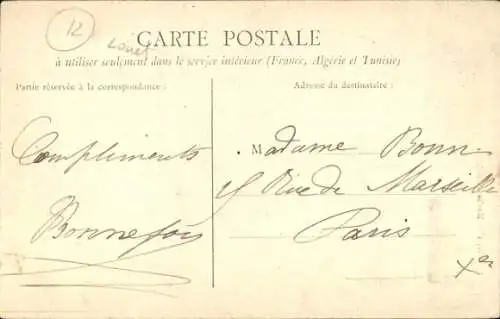 12
Loiret
CARTE POSTALE
à utiliser seulement dans le service intérieur (France, Algérie et Tunisie)
Partie réservée à la correspondance :
Compliments
Bonnefoy
Adresse du destinataire :
Madame Bonn
15 Rue de Marseille
Paris
Xe